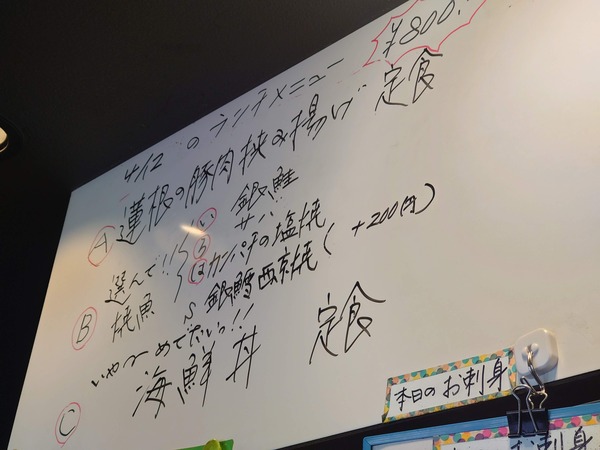 ¥800.-
4/12 のランチメニュー
Ⓐ 蓮根の豚肉挟み揚げ 定食
Ⓑ 選んで!! 焼魚
い 銀鮭
ろ サバ
は カンパチの塩焼
銀鱈西京焼 (+200円)
いや〜めでたいっ!!
Ⓒ 海鮮丼 定食
本日のお刺身
本日のお刺身